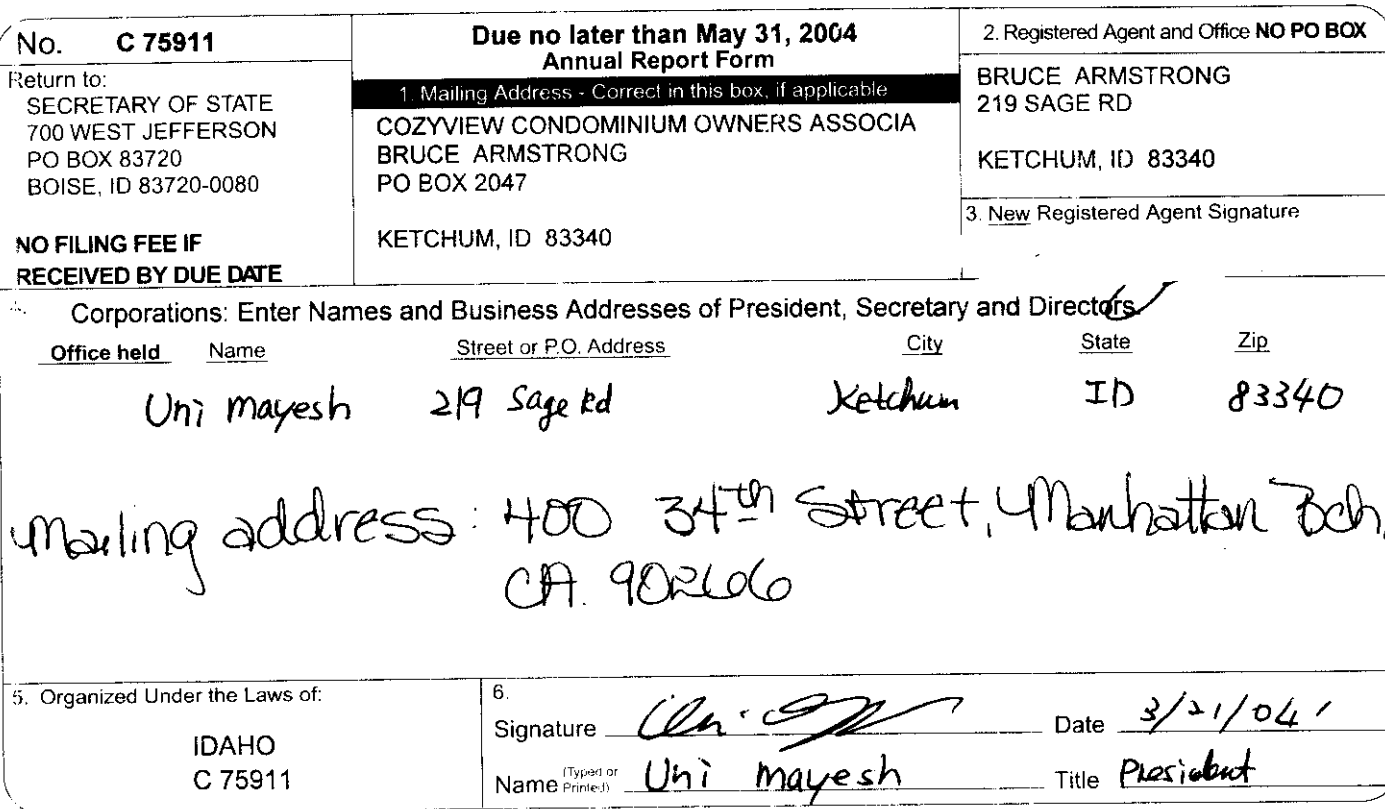 No. C 75911
Return to:
SECRETARY OF STATE
700 WEST JEFFERSON
PO BOX 83720
BOISE, ID 83720-0080
NO FILING FEE IF
RECEIVED BY DUE DATE
Due no later than May 31, 2004
Annual Report Form
1. Mailing Address - Correct in this box, if applicable
COZYVIEW CONDOMINIUM OWNERS ASSOCIA
BRUCE ARMSTRONG
PO BOX 2047
KETCHUM, ID 83340
2. Registered Agent and Office NO PO BOX
BRUCE ARMSTRONG
219 SAGE RD
KETCHUM, ID 83340
3. New Registered Agent Signature
Corporations: Enter Names and Business Addresses of President, Secretary and Directors.
Office held Name Street or P.O. Address City State Zip
Uni mayesh 219 Sage Rd Ketchum ID 83340
Mailing address: 400 34th Street, Manhattan Bch,
CA. 90266
5. Organized Under the Laws of:
IDAHO
C 75911
6.
Signature Date 3/21/04
Name (Typed or Printed) Uni mayesh Title President